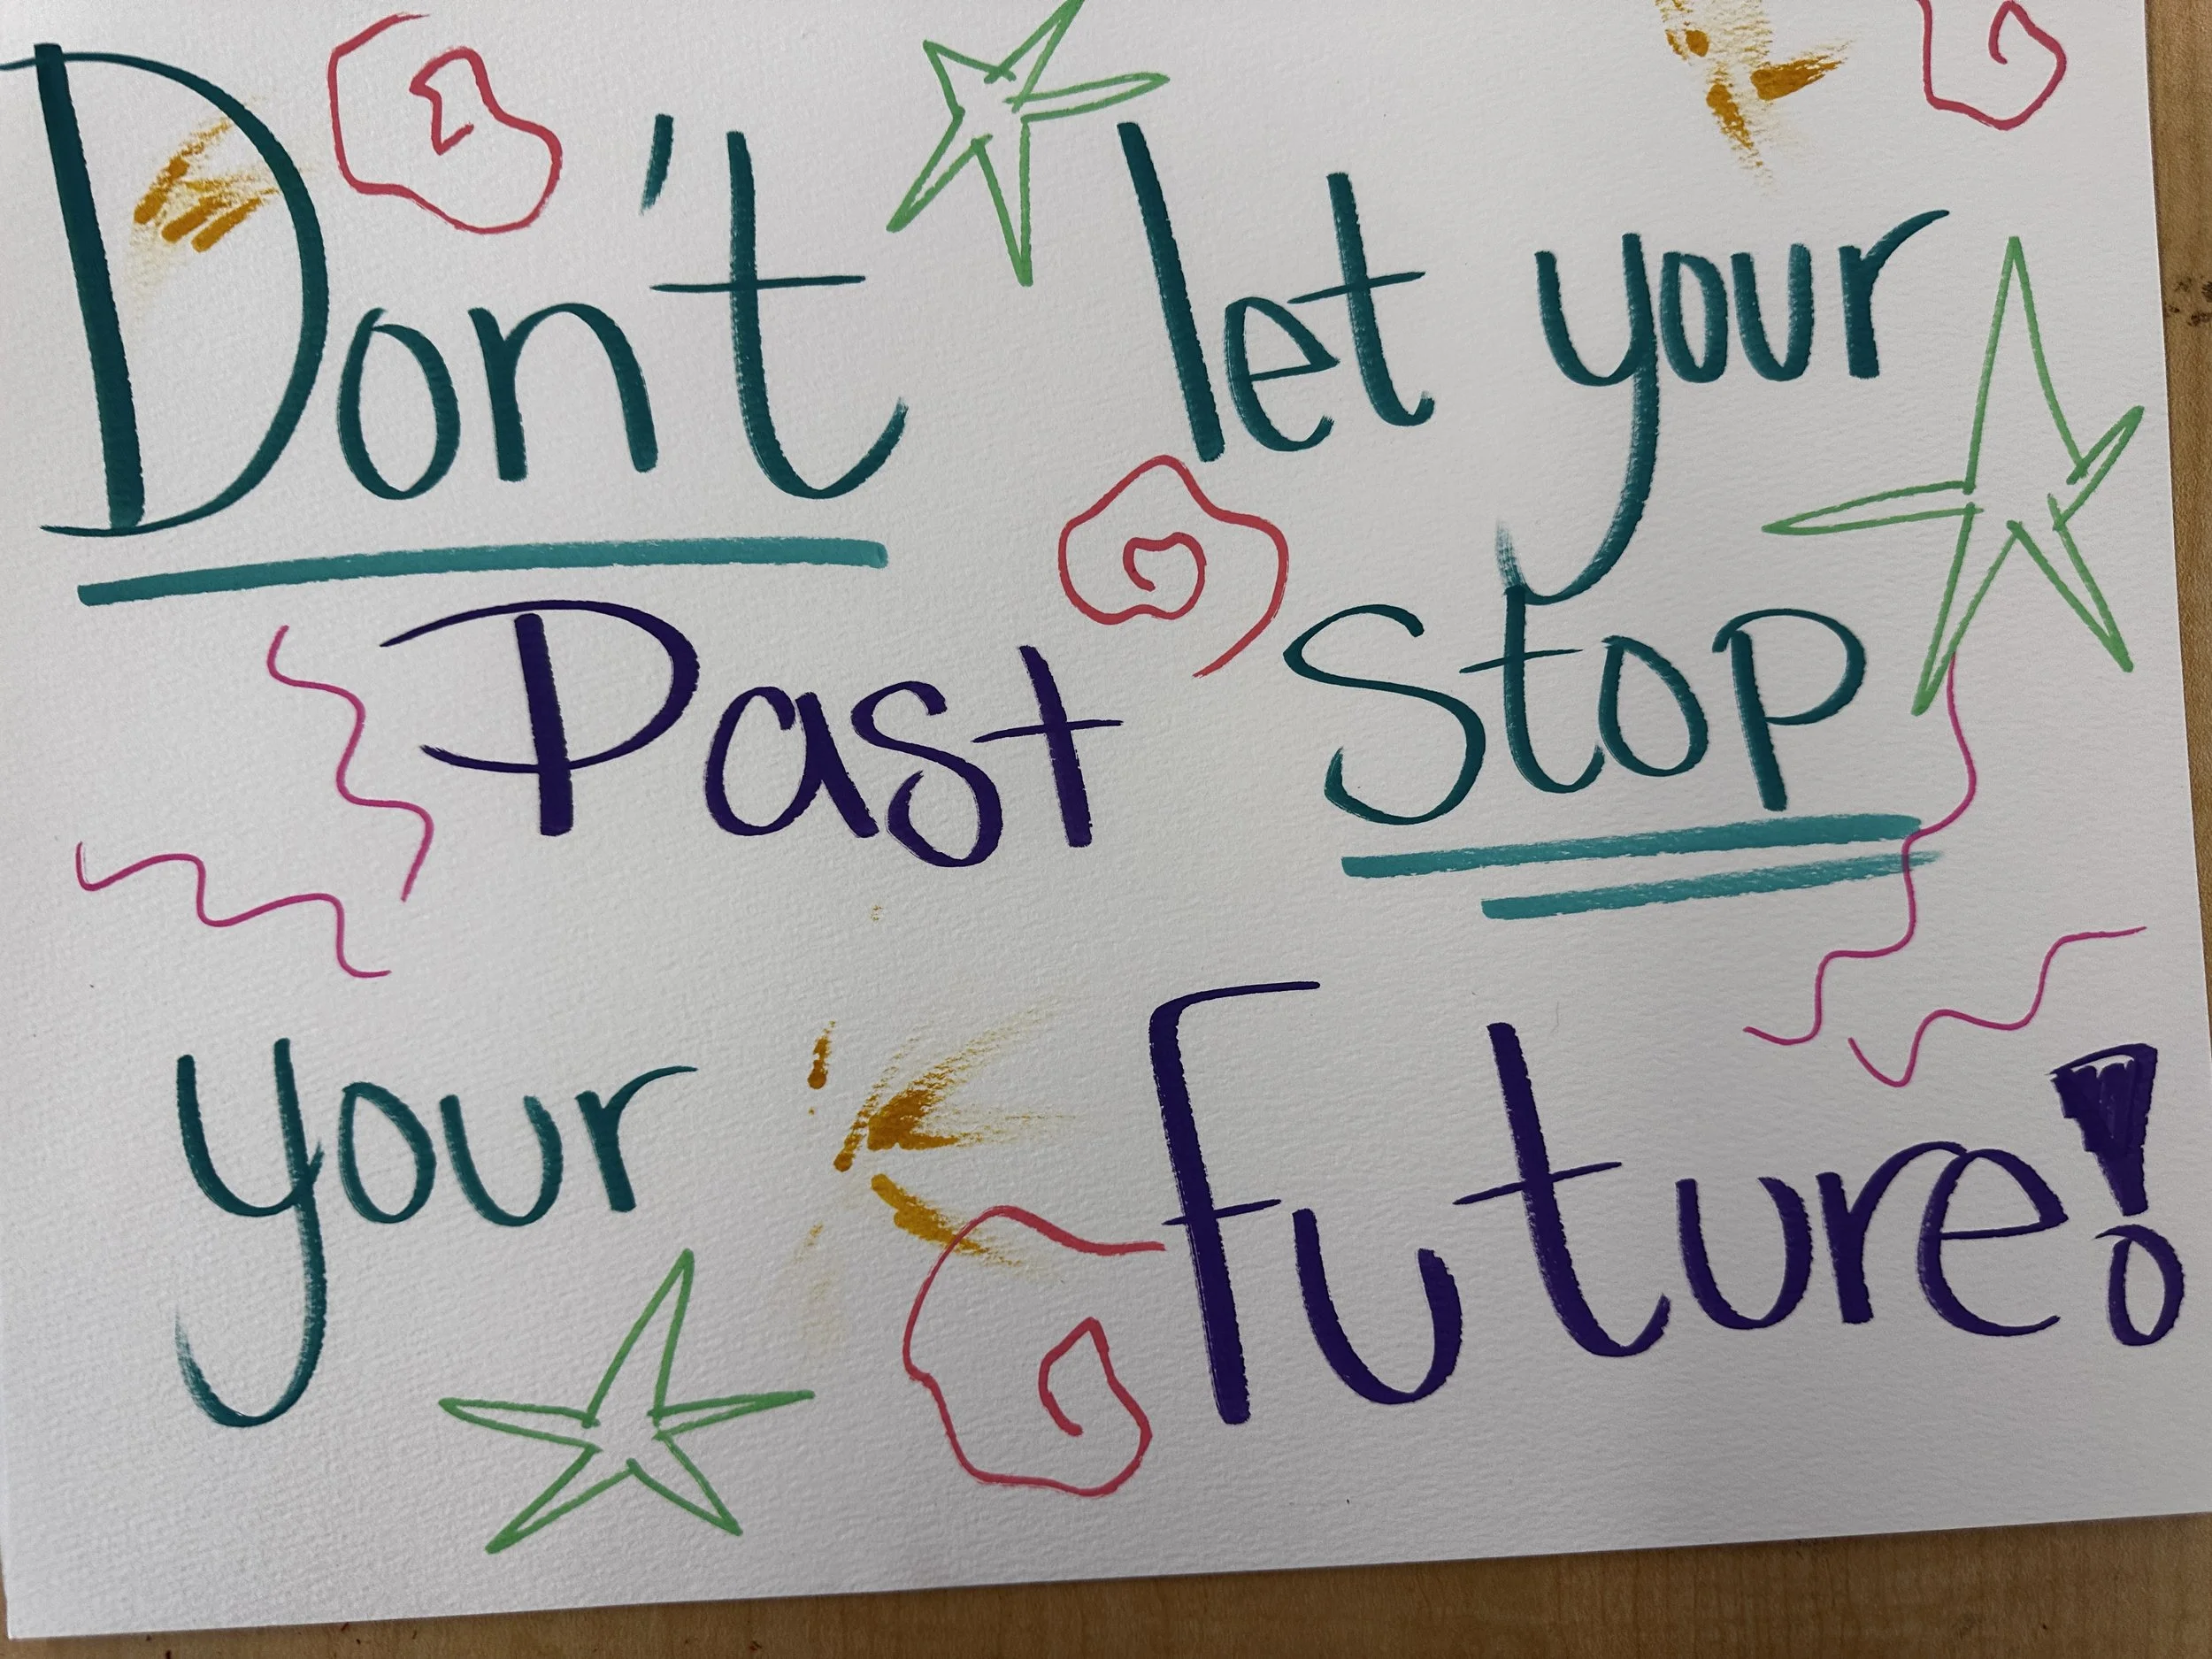 Don't let your
Past Stop
your Future!